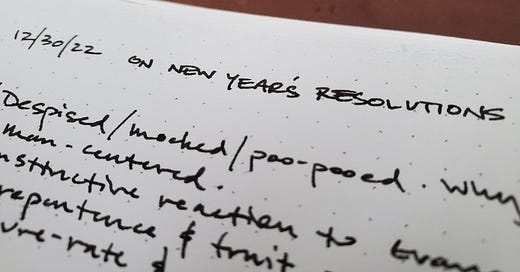 12/30/22 ON NEW YEAR'S RESOLUTIONS
Despised/mocked/poo-pooed. Why
man-centered.
instinctive reaction to
repentance & fruit
ure-rate &